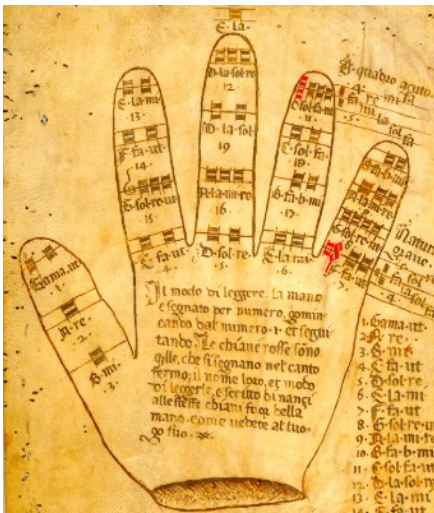 E·la·
D·la·sol·re·
12·
E·la·mi·
13·
F·fa·ut·
14·
G·sol·re·ut·
15·
D·la·sol·
19
A·la·mi·re·
16·
C·sol·fa·ut
11·
C·sol·fa·
18·
B·fa·b·mi·
17·
♮·quadro acuto·
B·fa·b·mi
A·la·mi·re
G·sol·re·ut
F·fa·ut
7·
Natura
grave·
C·fa·ut·
4·
D·sol·re·
5·
E·la·mi·
6·
Gama·ut·
1·
A·re·
2·
B·mi·
3·
Il modo di leggere la mano
è segnato per numero, comin
cando dal numero·1· et segui
tando· Le chiave rosse sono
q̃lle, che si segnano nel canto
fermo; il nome loro, et modo
di leggerle, è scritto di nanzi
alle stesse chiavi
mano, come vedete al luo-
go suo·
1·Gama·ut·
2·A·re·
3·B·mi·
4·C·fa·ut
5·D·sol·re·
6·E·la·mi·
7·F·fa·ut
8·G·sol·re·ut
9·A·la·mi·re
10·B·fa·b·mi
11·C·sol·fa·ut
12·D·la·sol·re
13·E·la·mi
14·F·fa·ut